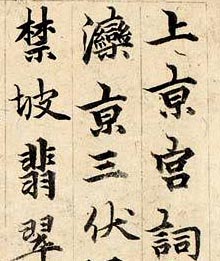 上京宮詞
灤京三伏
禁坡翡翠